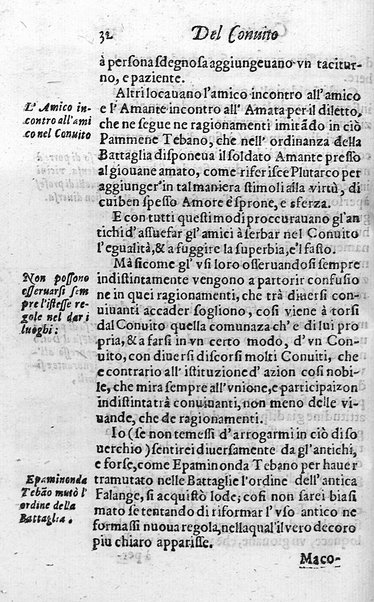 32 Del Conuito
à persona sdegnosa aggiungeuano vn tacitur-
no, e paziente.
Altri locauano l'amico incontro all'amico
e l'Amante incontro all'Amata per il diletto,
che ne segue ne ragionamenti imitãdo in ciò
Pammene Tebano, che nell'ordinanza della
Battaglia disponeua il soldato Amante presso
al giouane amato, come riferisce Plutarco per
aggiunger'in tal maniera stimoli alla virtù, di
cui ben spesso Amore è sprone, e sferza.
E con tutti questi modi proccurauano gl'an
tichi d'assuefar gl'amici à serbar nel Conuito
l'egualità, & a fuggire la superbia, e'l fasto.
Mà sicome gl'vsi loro osseruandosi sempre
indistintamente vengono a partorir confusio
ne in quei ragionamenti, che trà diuersi con-
uiuanti accader sogliono, cosi viene à torsi
dal Conuito quella comunaza ch'è di lui pro
pria, & à farsi in vn certo modo, d'vn Con-
uito, con diuersi discorsi molti Conuiti, che
e contrario all'istituzione d'azion cosi nobi-
le, che mira sempre all'vnione, e participaizon
indistinta trà conuiuanti, non meno delle vi-
uande, che de ragionamenti.
Io (se non temessi d'arrogarmi in ciò di so
uerchio) sentirei diuersamente da gl'antichi,
e forse, come Epaminonda Tebano per hauer
tramutato nelle Battaglie l'ordine dell'antica
Falange, si acquistò lode; cosi non sarei biasi
mato se tentando di riformar l'vso antico ne
formassi nuoua regola, nella qual'il vero decoro
più chiaro apparisse.
Maco-
L'Amico in-
contro all'ami
co nel Conuito
Non possono
osseruarsi sem
pre l'istesse re-
gole nel dar i
luoghi:
Epaminonda
Tebão mutò l'
ordine della
Battaglia.